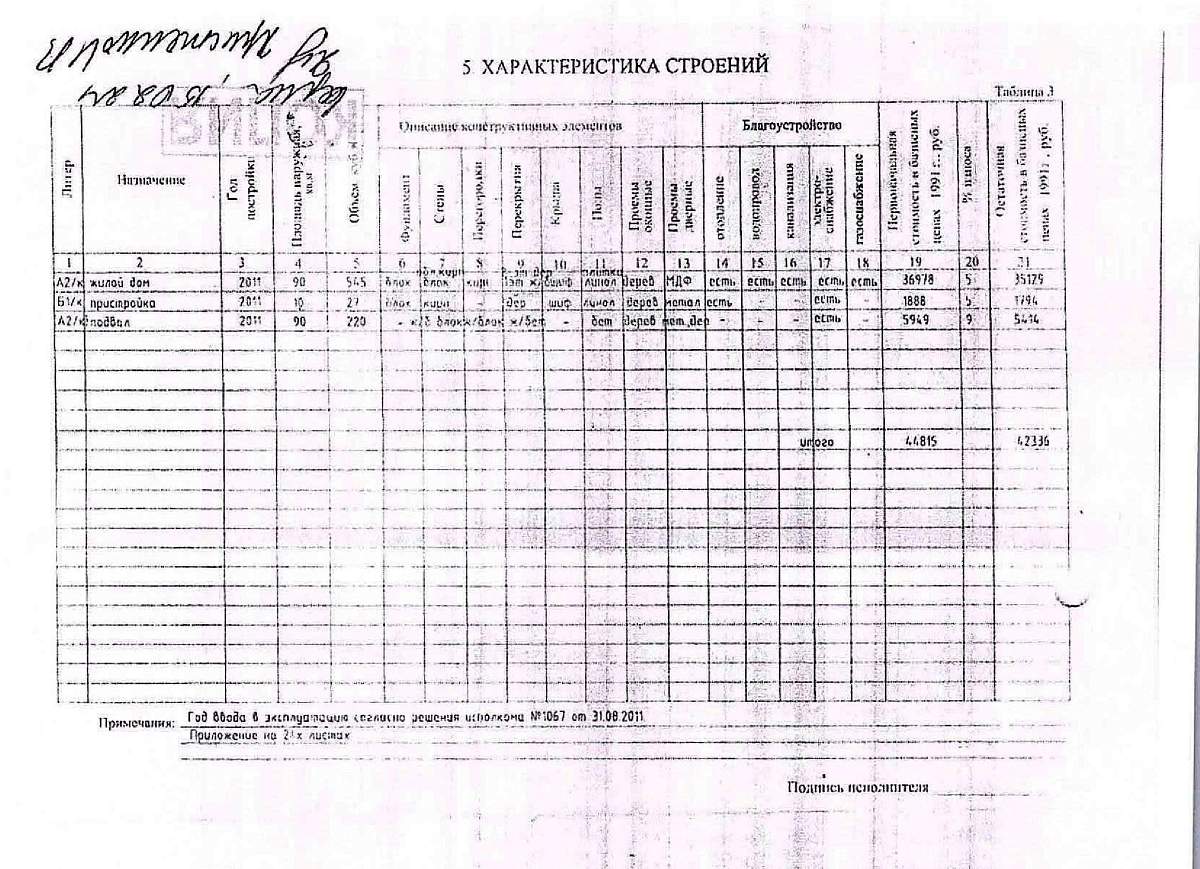 5. ХАРАКТЕРИСТИКА СТРОЕНИЙ
Таблица 3
КОПИЯ
Литер
Назначение
Год постройки
Площадь наружная, кв.м
Объем, куб.м
Описание конструктивных элементов
Благоустройство
Первоначальная стоимость в базисных ценах 1991 г., руб.
% износа
Остаточная стоимость в базисных ценах 1991г., руб.
Фундамент
Стены
Перегородки
Перекрытия
Крыша
Полы
Проемы оконные
Проемы дверные
отопление
водопровод
канализация
электро-снабжение
газоснабжение
1 2 3 4 5 6 7 8 9 10 11 12 13 14 15 16 17 18 19 20 21
А2/к жилой дом 2011 90 545 блок обл.кирп блок кирп ж/б шиф плитка линол дерев МДФ есть есть есть есть есть 36978 5 35129
Б1/к пристройка 2011 10 27 блок кирп - дер шиф линол дерев метал есть - - есть - 1888 5 1794
А2/к подвал 2011 90 220 - ж/б блок ж/блок ж/бет - бет дерев мет,дер - - - есть - 5949 9 5414
итого 44815 42336
Примечания: Год ввода в эксплуатацию согласно решения исполкома №1067 от 31.08.2011
Приложение на 2-х листах
Подпись исполнителя